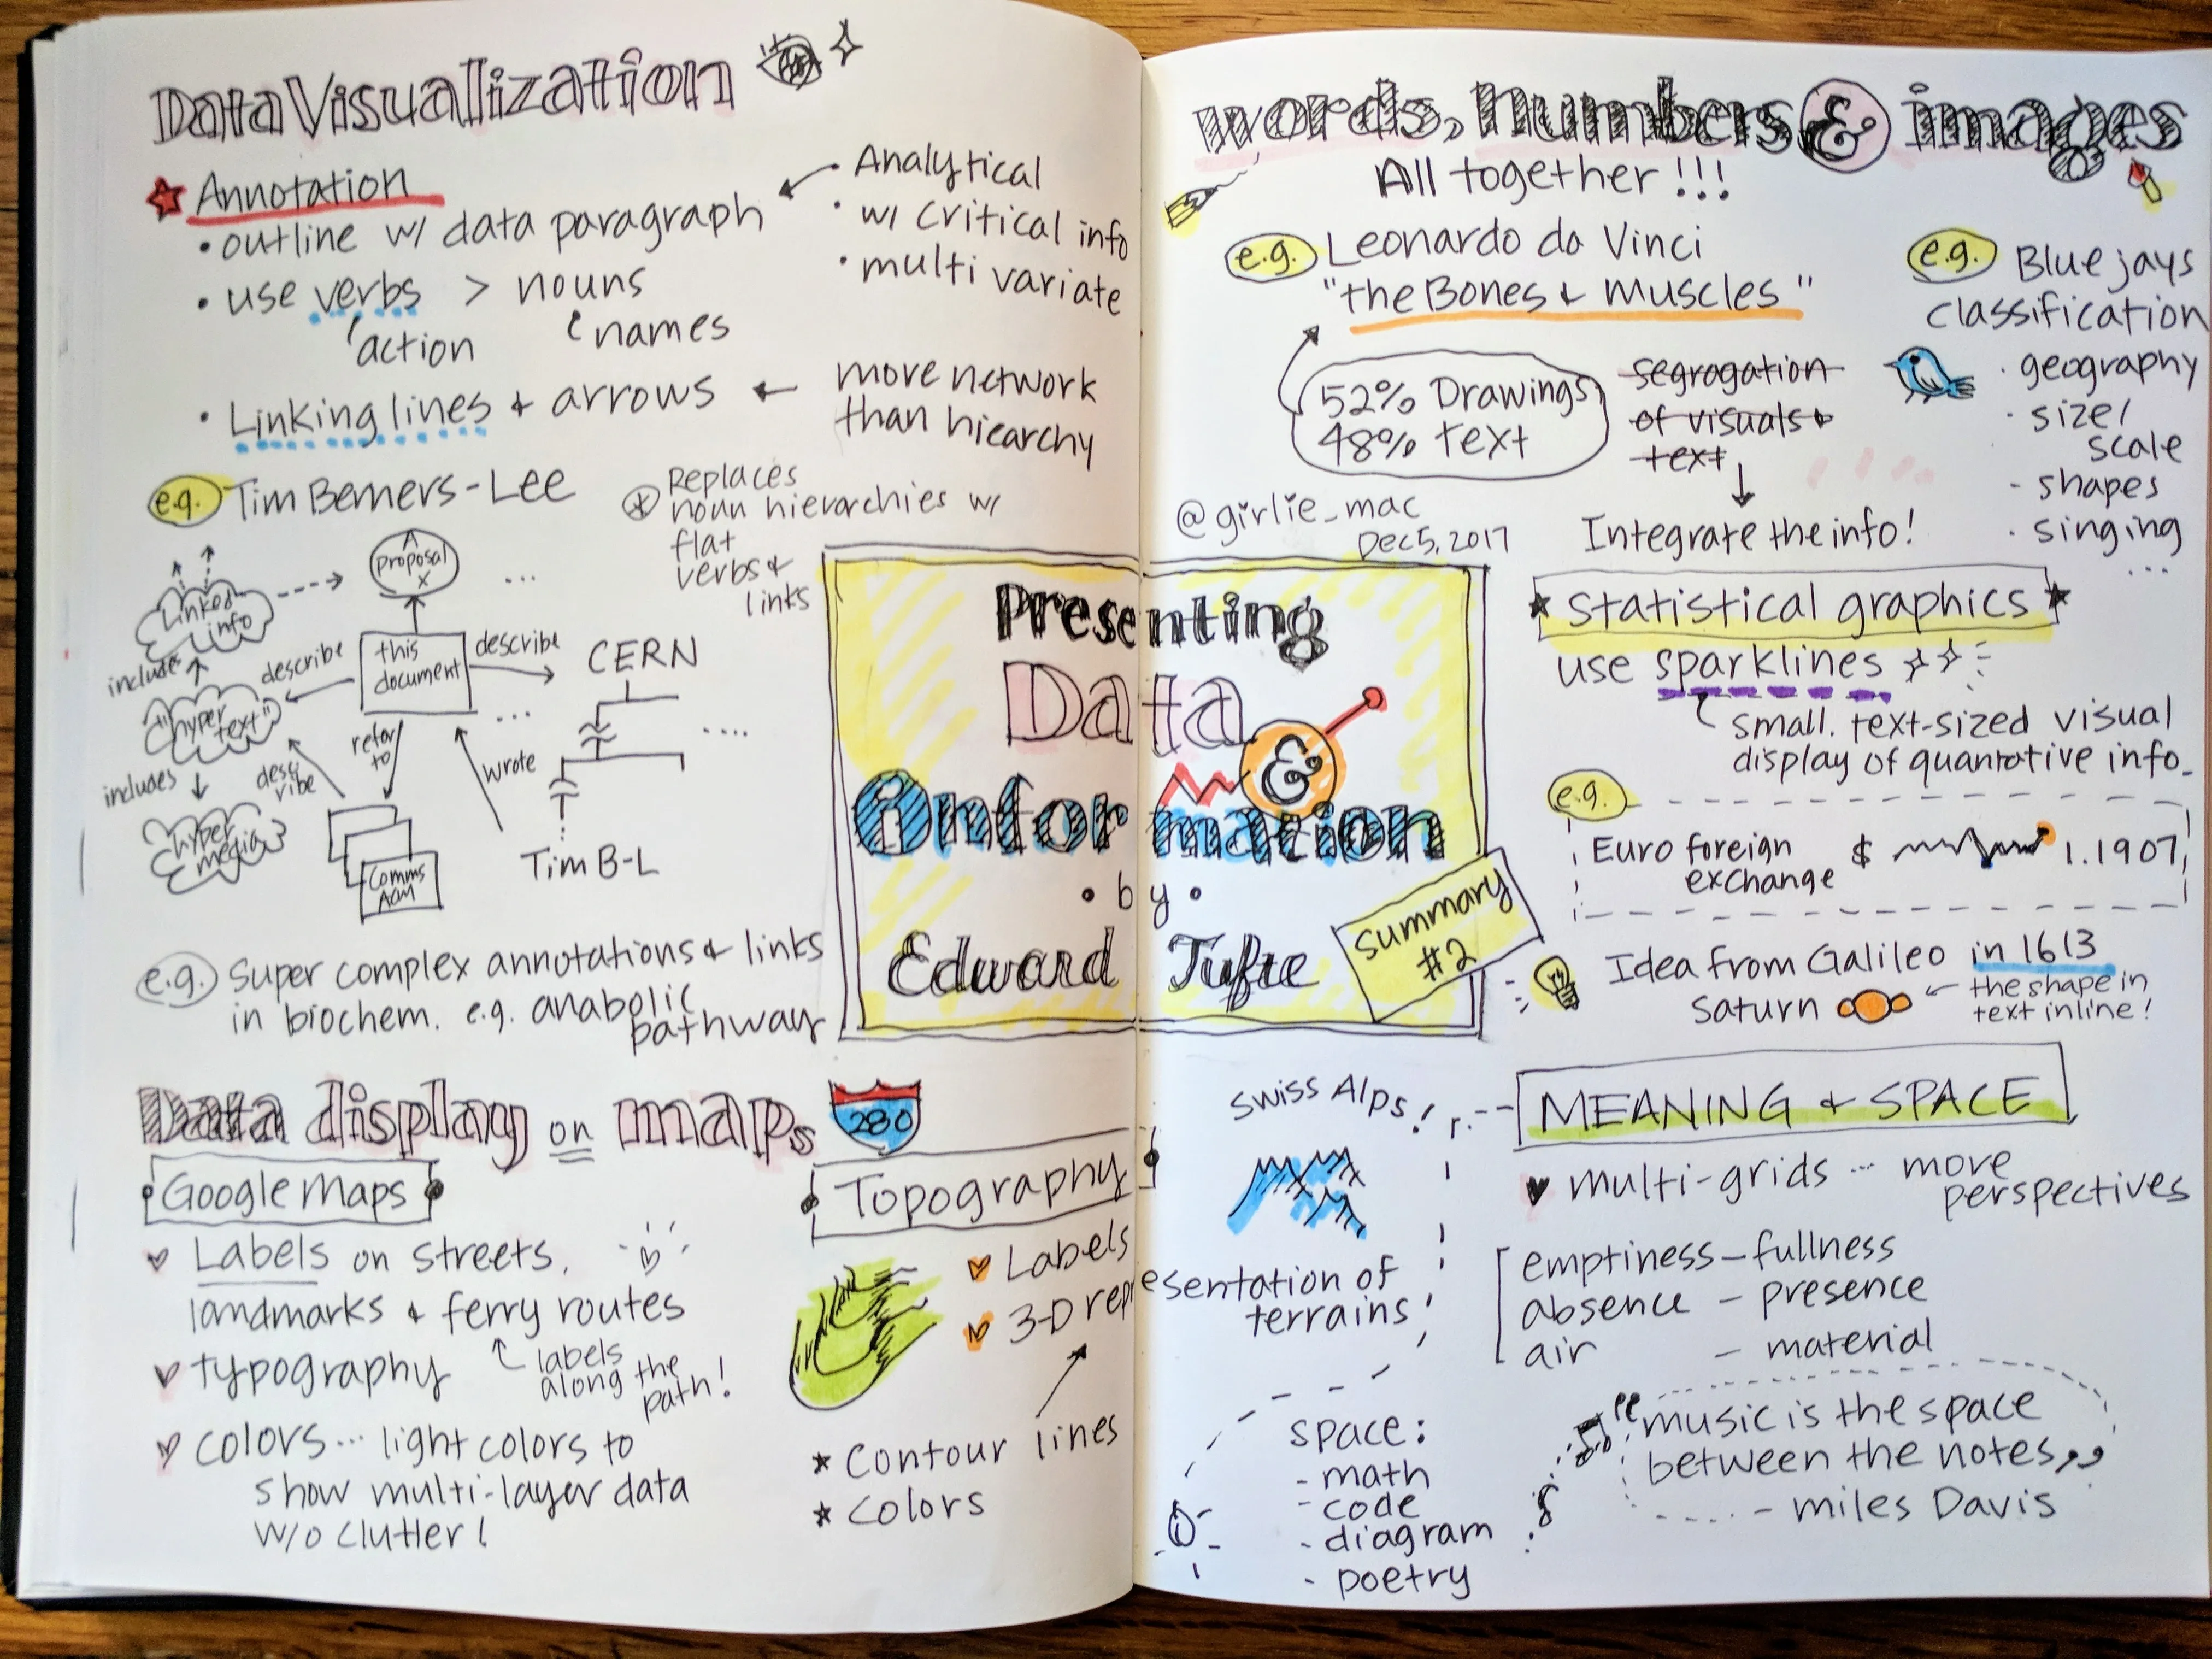 Data Visualization
Annotation
• outline w/ data paragraph
• use verbs > nouns
action
names
• Linking lines & arrows ← more network
than hiearchy
Analytical
• w/ critical info
• multi variate
e.g. Tim Berners-Lee
* Replaces
noun hierarchies w/
flat
verbs &
links
A
proposal
X
...
Linked
info
includes
describe
this
document
describe
CERN
"hyper
text"
...
....
refer
to
wrote
includes
desc
ribe
hyper
media
Comms
ACM
Tim B-L
e.g. Super complex annotations & links
in biochem. e.g. anabolic
pathway
Data display on maps
280
Google Maps
Labels on streets,
landmarks & ferry routes
labels
along the
path!
typography
colors... light colors to
show multi-layer data
w/o clutter!
Topography
Labels
3-D representation of
terrains!
* Contour lines
* colors
Presenting
Data
&
Information
• by •
Edward Tufte
Summary
#2
words, numbers & images
All together!!!
e.g. Leonardo da Vinci
"the Bones & Muscles"
52% Drawings
48% text
segregation
of visuals &
text
Integrate the info!
@girlie_mac
Dec 5, 2017
e.g. Blue jays
classification
· geography
· size/
scale
- shapes
· singing
...
statistical graphics
use sparklines
small. text-sized visual
display of quantotive info.
e.g.
Euro foreign
exchange
$ 1.1907
Idea from Galileo in 1613
Saturn ← the shape in
text inline!
Swiss Alps!
MEANING & SPACE
multi-grids ... more
perspectives
emptiness – fullness
absence – presence
air – material
space:
- math
- code
- diagram
- poetry
"music is the space
between the notes,,
- miles Davis